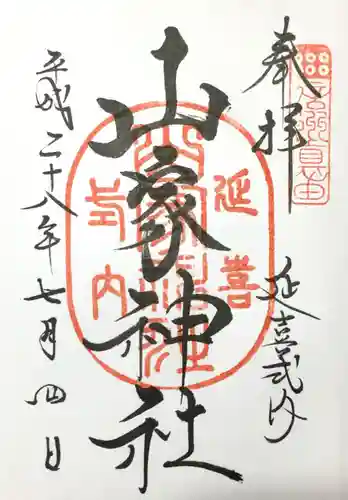 奉拝
延喜式内
山家神社
平成二十八年七月四日
延喜
式内